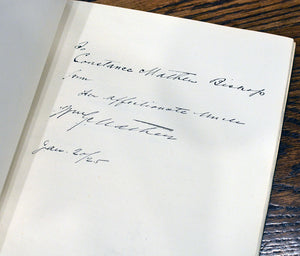 To
Constance Mather Bishop
from
her affectionate uncle
Wm. G. Mather
Jan. 20/25